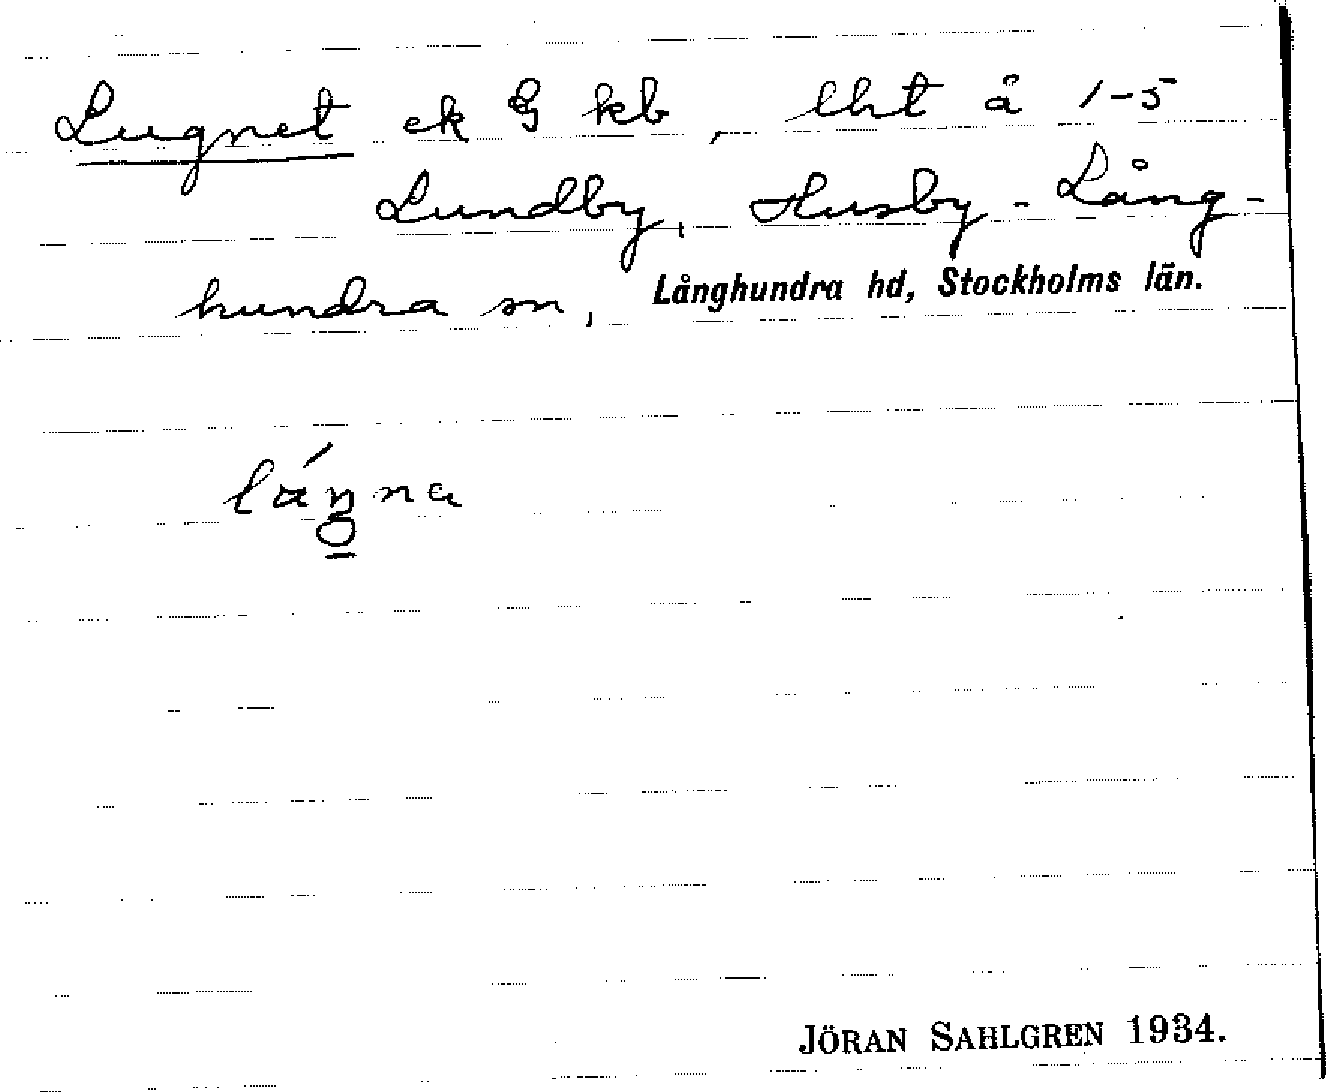 Lugnet ek G kb, lht å 1-5
Lundby, Husby-Lång-
hundra sn, Långhundra hd, Stockholms län.
JÖRAN SAHLGREN 1934.